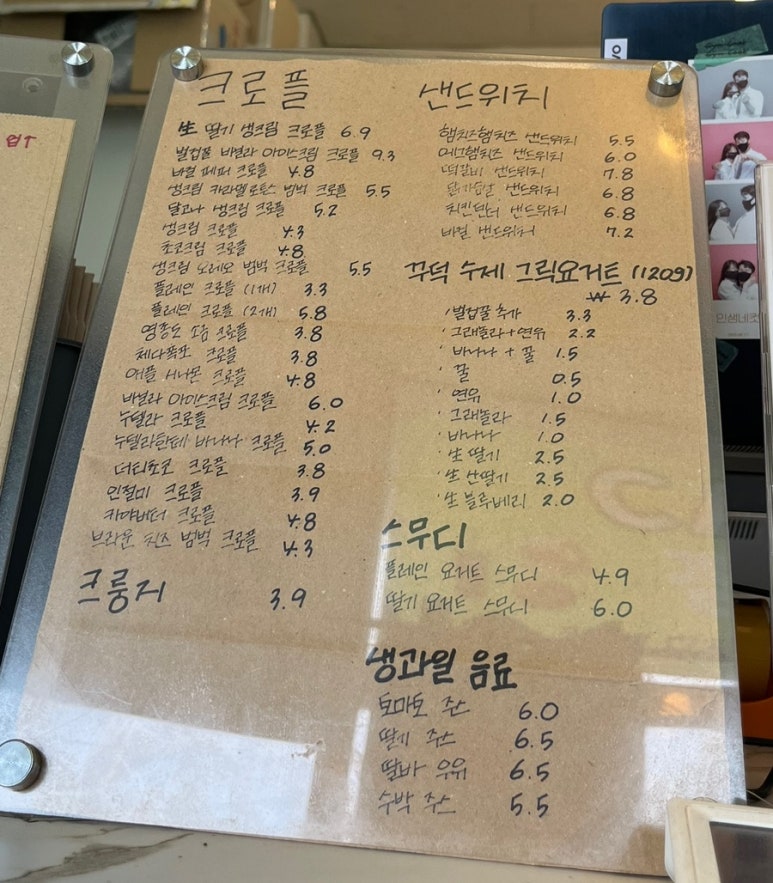 업↑
크로플
生 딸기 생크림 크로플 6.9
벌집꿀 바닐라 아이스크림 크로플 9.3
바질 페퍼 크로플 4.8
생크림 카라멜로투스 범벅 크로플 5.5
달고나 생크림 크로플 5.2
생크림 크로플 4.3
초코크림 크로플 4.8
생크림 오레오 범벅 크로플 5.5
플레인 크로플 (1개) 3.3
플레인 크로플 (2개) 5.8
영종도 소금 크로플 3.8
체다폭포 크로플 3.8
애플 시나몬 크로플 4.8
바닐라 아이스크림 크로플 6.0
누텔라 크로플 4.2
누텔라한테 바나나 크로플 5.0
더티초코 크로플 3.8
인절미 크로플 3.9
카야버터 크로플 4.8
브라운 치즈 범벅 크로플 4.3
크룽지 3.9
샌드위치
햄치즈햄치즈 샌드위치 5.5
에그햄치즈 샌드위치 6.0
떡갈비 샌드위치 7.8
닭가슴살 샌드위치 6.8
치킨텐더 샌드위치 6.8
바질 샌드위치 7.2
꾸덕 수제 그릭요거트 (120g)
₩ 3.8
'벌집꿀 추가 3.3
'그래놀라+연유 2.2
'바나나 + 꿀 1.5
'꿀 0.5
'연유 1.0
'그래놀라 1.5
'바나나 1.0
'生 딸기 2.5
'生 산딸기 2.5
'生 블루베리 2.0
스무디
플레인 요거트 스무디 4.9
딸기 요거트 스무디 6.0
생과일 음료
토마토 주스 6.0
딸기 주스 6.5
딸바 우유 6.5
수박 주스 5.5
인생네컷